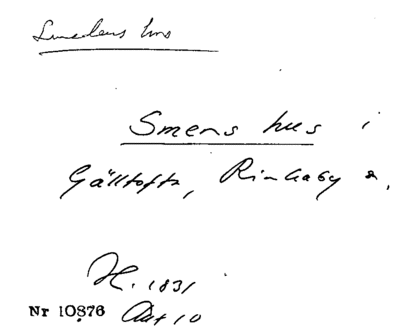 Smedens hus
Smens hus i
Gälltofta, Rinkaby s.
H. 1831
Nr 10876 Akt 10